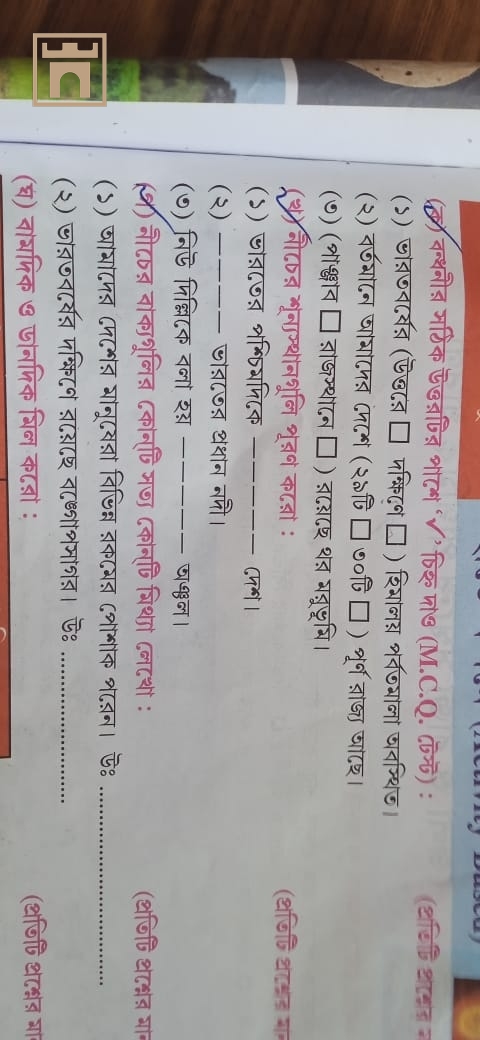 (Activity Based)
(ক) বন্ধনীর সঠিক উত্তরটির পাশে ‘✓’ চিহ্ন দাও (M.C.Q. টেস্ট) : (প্রতিটি প্রশ্নের
(১) ভারতবর্ষের (উত্তরে □ দক্ষিণে □) হিমালয় পর্বতমালা অবস্থিত।
(২) বর্তমানে আমাদের দেশে (২৯টি □ ৩০টি □) পূর্ণ রাজ্য আছে।
(৩) (পাঞ্জাব □ রাজস্থানে □) রয়েছে থর মরুভূমি।
(খ) নীচের শূন্যস্থানগুলি পূরণ করো : (প্রতিটি প্রশ্নের
(১) ভারতের পশ্চিমদিকে ————— দেশ।
(২) ————— ভারতের প্রধান নদী।
(৩) নিউ দিল্লিকে বলা হয় ————— অঞ্চল।
(গ) নীচের বাক্যগুলির কোন্‌টি সত্য কোন্‌টি মিথ্যা লেখো : (প্রতিটি প্রশ্নের
(১) আমাদের দেশের মানুষেরা বিভিন্ন রকমের পোশাক পরেন। উঃ ........................................
(২) ভারতবর্ষের দক্ষিণে রয়েছে বঙ্গোপসাগর। উঃ ..............................
(ঘ) বামদিক ও ডানদিক মিল করো : (প্রতিটি প্রশ্নের